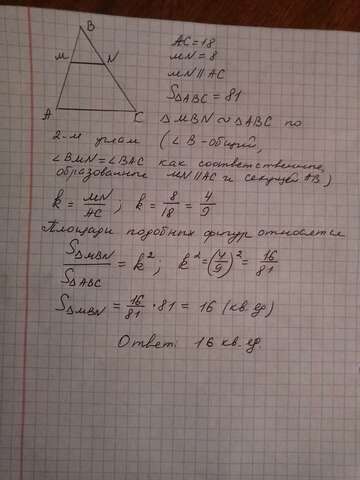 B
M N
A C
AC = 18
MN = 8
MN || AC
S△ABC = 81
△ MBN ~ △ABC по
2-м углам (∠B - общий,
∠BMN = ∠BAC как соответственные,
образованные MN || AC и секущей AB)
k = MN/AC ; k = 8/18 = 4/9
Площади подобных фигур относятся
S△MBN/S△ABC = k²; k² = (4/9)² = 16/81
S△MBN = 16/81 · 81 = 16 (кв. ед)
Ответ: 16 кв. ед.